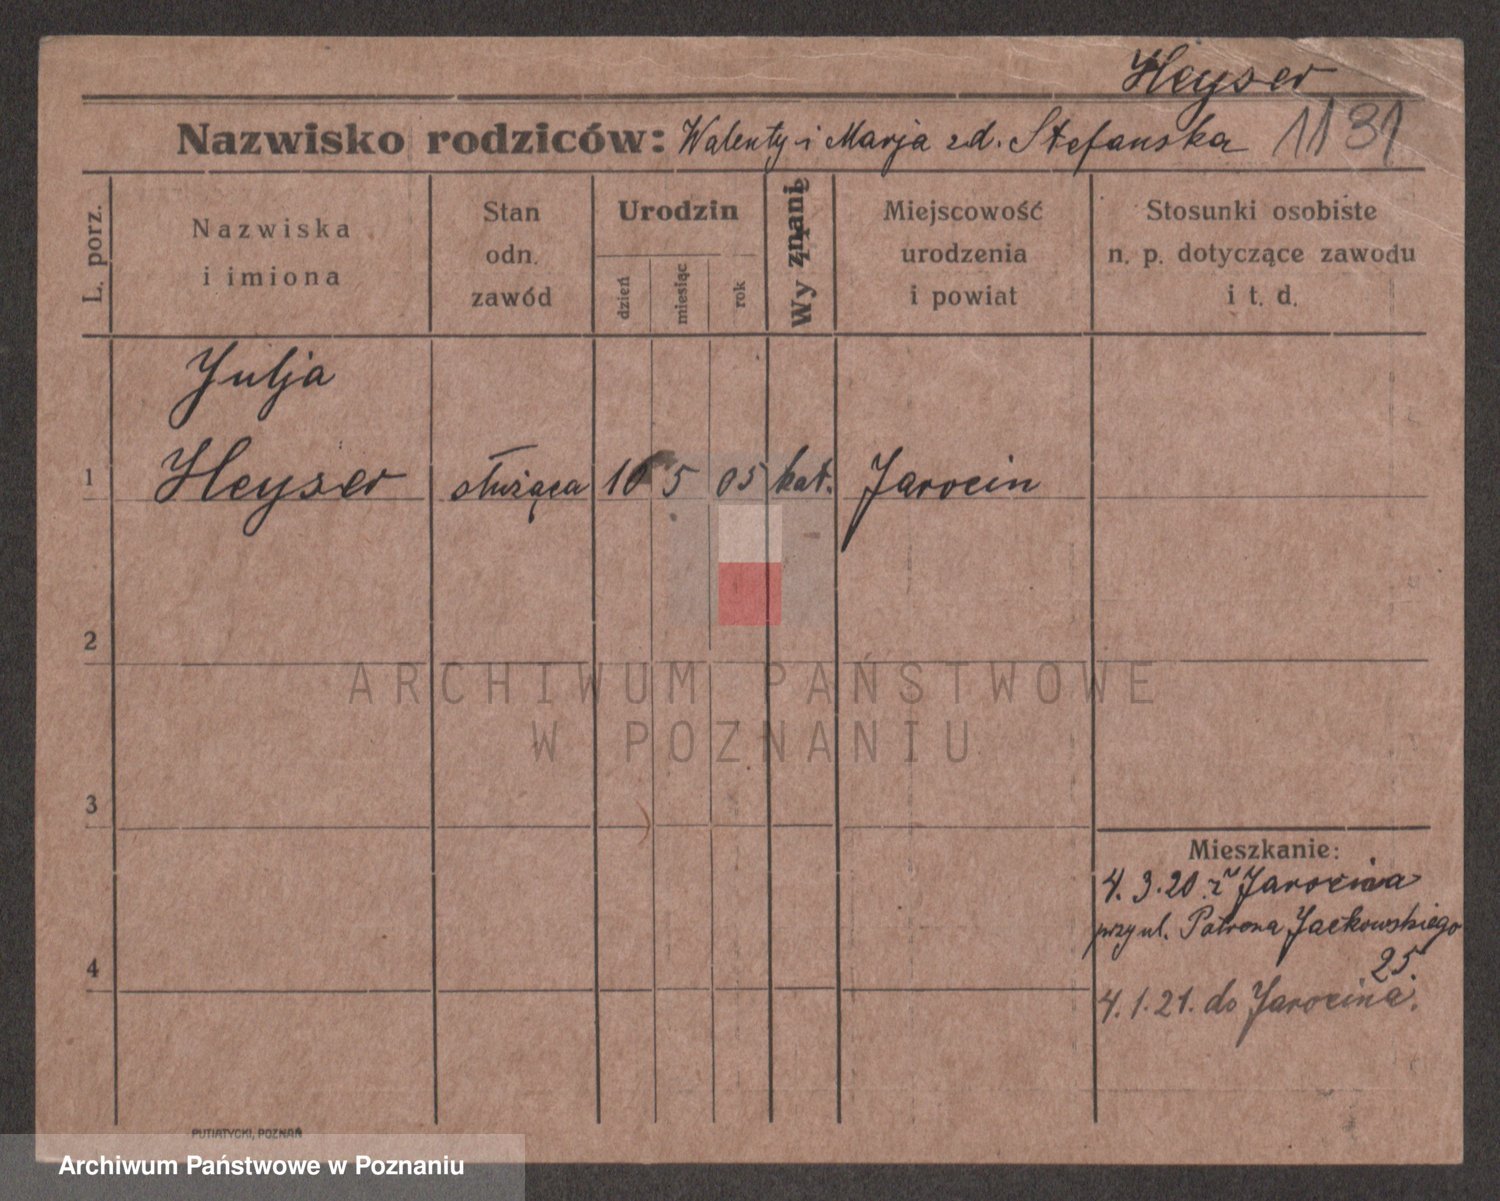 Heyser
Nazwisko rodziców: Walenty i Marja zd. Stefanska 1131
L. porz.
Nazwiska
i imiona
Stan
odn.
zawód
Urodzin
dzień
miesiąc
rok
Wyznani
Miejscowość
urodzenia
i powiat
Stosunki osobiste
n. p. dotyczące zawodu
i t. d.
Julja
1 Heyser służąca 10 5 05 kat. Jarocin
2
ARCHIWUM PAŃSTWOWE
W POZNANIU
3
Mieszkanie:
4. 3. 20. z Jarocina
przy ul. Patrona Jackowskiego
25.
4
4. 1. 21. do Jarocina.
PUTIATYCKI, POZNAŃ
Archiwum Państwowe w Poznaniu